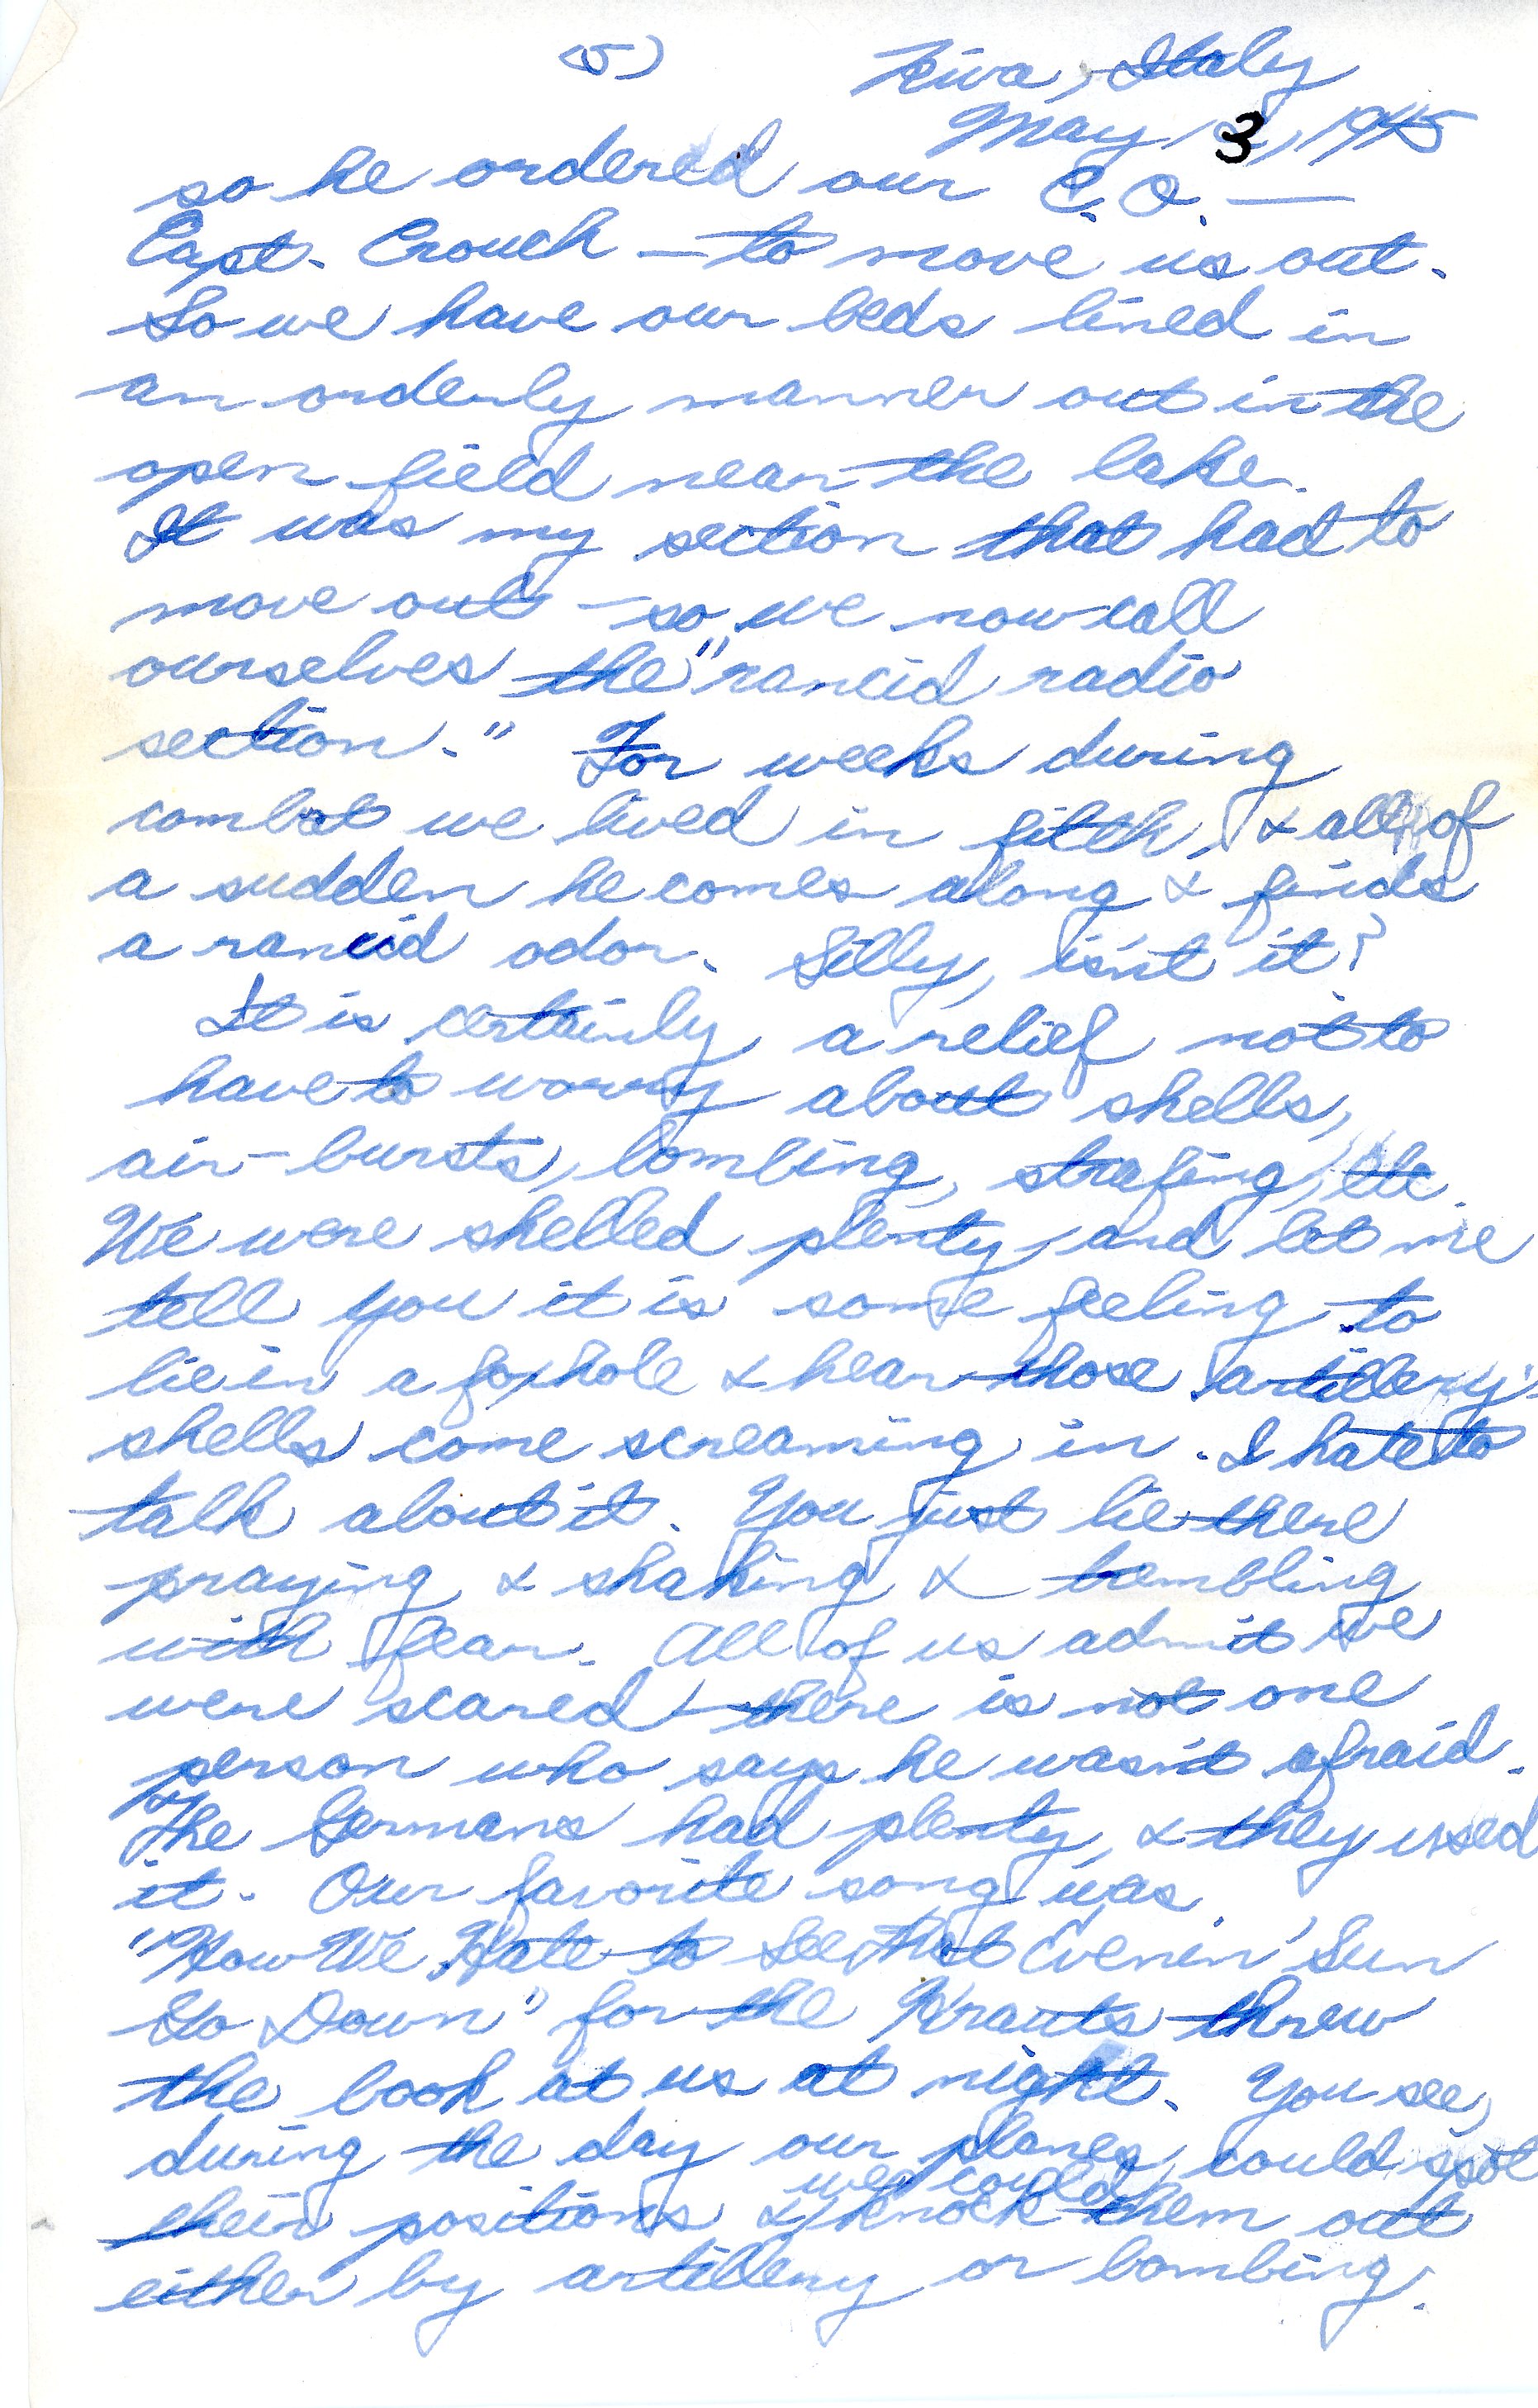 (5)
Riva, Italy
May 3, 1945
so he ordered our C.O. —
Capt. Crouch — to move us out.
So we have our beds lined in
an orderly manner out in the
open field near the lake.
It was my section that had to
move out — so we now call
ourselves the "rancid radio
section." For weeks during
combat we lived in filth, & all of
a sudden he comes along & finds
a rancid odor. Silly, isn't it?
It is certainly a relief not to
have to worry about shells,
air-bursts, bombing, strafing, etc.
We were shelled plenty, and let me
tell you it is some feeling to
lie in a foxhole & hear those artillery
shells come screaming in. I hate to
talk about it. You just lie there
praying & shaking & trembling
with fear. All of us admit we
were scared – there is not one
person who says he wasn't afraid.
The Germans had plenty, & they used
it. Our favorite song was
"How We Hate to See That Evenin' Sun
Go Down" for the Krauts threw
the book at us at night. You see,
during the day our planes could spot
their positions & we could knock them out
either by artillery or bombing.